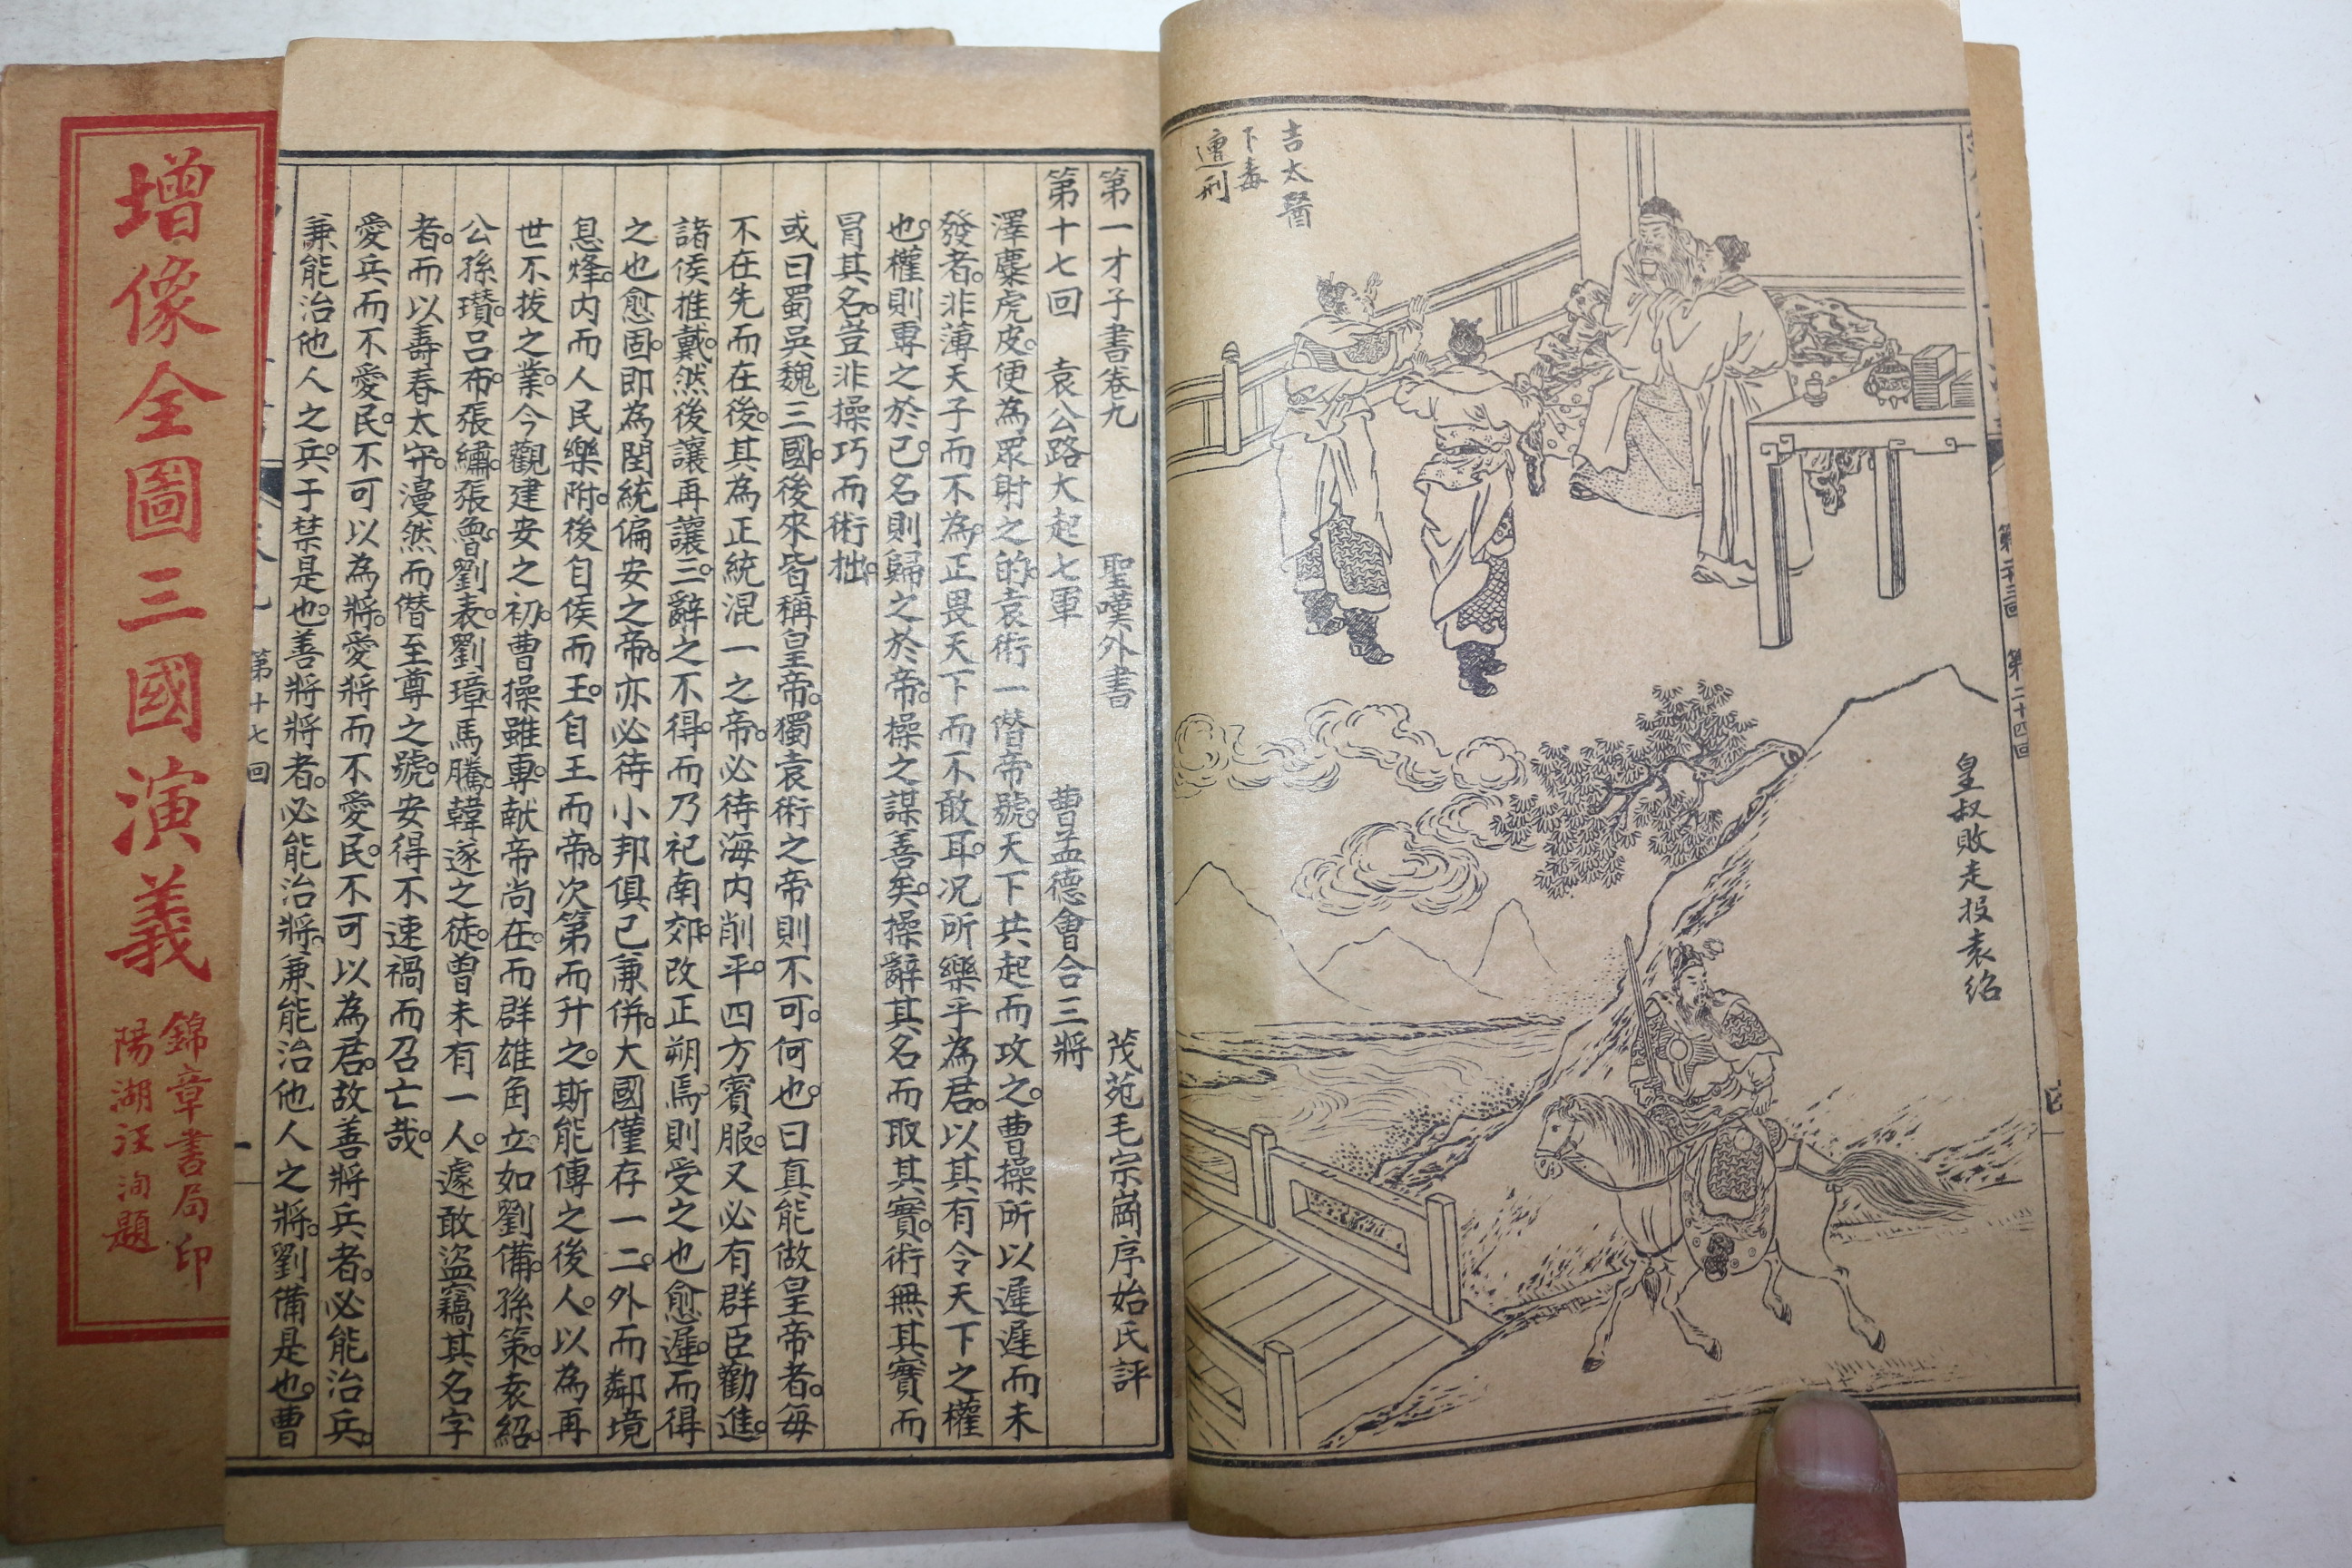 吉太醫
下毒
遭刑
皇叔敗走投袁紹
第二十四回
第一才子書卷九 聖嘆外書 茂苑毛宗崗序始氏評
第十七回 袁公路大起七軍 曹孟德會合三將
澤麋虎皮。便為眾射之的。袁術一僭帝號。天下共起而攻之。曹操所以遲遲而未
發者。非薄天子而不為。正畏天下而不敢耳。况所樂乎為君。以其有令天下之權
也。權則專之於己。名則歸之於帝。操之謀善矣。操辭其名而取其實。術無其實而
冒其名。豈非操巧而術拙。
或曰蜀吳魏三國。後來皆稱皇帝。獨袁術之帝則不可。何也。曰真能做皇帝者。每
不在先而在後。其為正統混一之帝。必待海內削平。四方賓服。又必有群臣勸進。
諸侯推戴。然後讓再讓三。辭之不得。而乃祀南郊。改正朔焉。則受之也愈遲。而得
之也愈固。即為閏統偏安之帝。亦必待小邦俱已兼併。大國僅存一二。外而鄰境
息烽。內而人民樂附。後自侯而王。自王而帝。次第而升之。斯能傳之後人。以為再
世不拔之業。今觀建安之初。曹操雖專。献帝尚在。而群雄角立。如劉備。孫策。袁紹。
公孫瓚。呂布。張繡。張魯。劉表。劉璋。馬騰。韓遂之徒。曾未有一人。遽敢盜竊其名字
者。而以壽春太守。漫然而僭至尊之號。安得不速禍而召亡哉。
愛兵而不愛民。不可以為將。愛將而不愛民。不可以為君。故善將兵者。必能治兵。
兼能治他人之兵。于禁是也。善將將者。必能治將。兼能治他人之將。劉備是也。曹
第十七回
一
增像全圖三國演義
錦章書局印
陽湖汪洵題